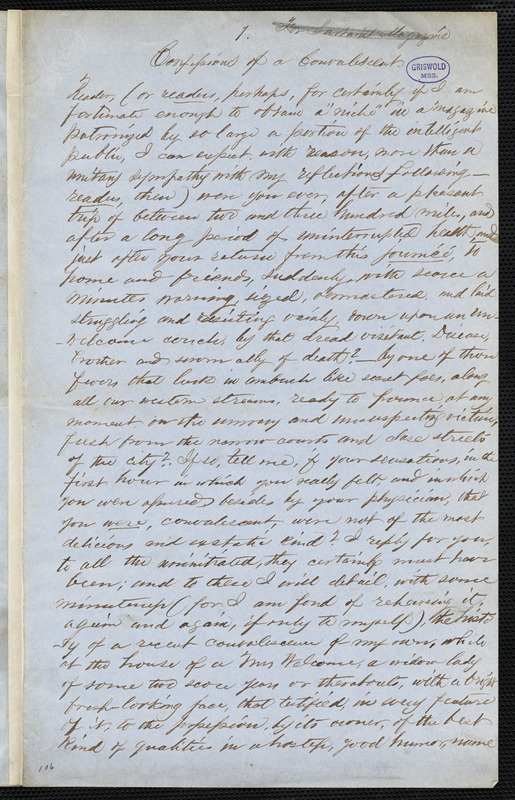 1. For Sartain's Magazine
Confessions of a Convalescent.
GRISWOLD
MSS.
Reader, (or readers, perhaps, for certainly if I am
fortunate enough to obtain a "niche" in a magazine
patronized by so large a portion of the intelligent
public, I can expect with reason, more than a
unitary sympathy with my reflections following—
readers, then) were you ever, after a pleasant
trip of between two and three hundred miles, and
after a long period of uninterrupted health, and
just after your return from this journey, to
home and friends, suddenly, with scarce a
minute's warning, siezed, overmastered and laid
struggling and resisting vainly, down upon an un-
-welcome couch, by that dread visitant, Disease,
brother and sworn ally of death?—by one of those
fevers that lurk in ambush like secret foes, along
all our western streams, ready to pounce, at any
moment on the unwary and unsuspecting victim,
fresh from the narrow courts and close streets
of the city? If so, tell me, if your sensations, in the
first hour in which you really felt and in which
you were assured besides by your physician, that
you were, convalescent, were not of the most
delicious and exstatic kind? I reply for you,
to all the uninitiated, they certainly must have
been; and to these I will detail, with some
minuteness (for I am fond of rehearsing it,
again and again, if only to myself) the histo-
-ry of a recent convalescence of my own, while
at the house of a Mrs Welcome, a widow lady
of some two score years or thereabouts, with a bright
fresh-looking face, that testified, in every feature
of it, to the possession, by its owner, of the best
kind of qualities in a hostess, good humor, some
106